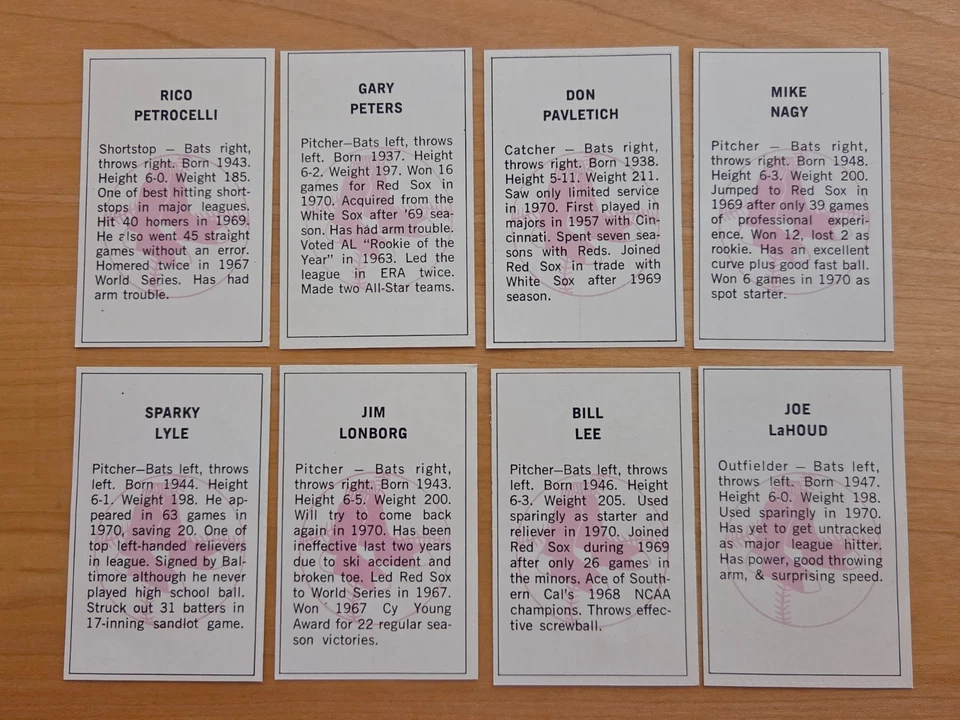 RICO
PETROCELLI
Shortstop — Bats right,
throws right. Born 1943.
Height 6-0. Weight 185.
One of best hitting short-
stops in major leagues.
Hit 40 homers in 1969.
He also went 45 straight
games without an error.
Homered twice in 1967
World Series. Has had
arm trouble.
GARY
PETERS
Pitcher—Bats left, throws
left. Born 1937. Height
6-2. Weight 197. Won 16
games for Red Sox in
1970. Acquired from the
White Sox after '69 sea-
son. Has had arm trouble.
Voted AL "Rookie of the
Year" in 1963. Led the
league in ERA twice.
Made two All-Star teams.
DON
PAVLETICH
Catcher — Bats right,
throws right. Born 1938.
Height 5-11. Weight 211.
Saw only limited service
in 1970. First played in
majors in 1957 with Cin-
cinnati. Spent seven sea-
sons with Reds. Joined
Red Sox in trade with
White Sox after 1969
season.
MIKE
NAGY
Pitcher — Bats right,
throws right. Born 1948.
Height 6-3. Weight 200.
Jumped to Red Sox in
1969 after only 39 games
of professional experi-
ence. Won 12, lost 2 as
rookie. Has an excellent
curve plus good fast ball.
Won 6 games in 1970 as
spot starter.
SPARKY
LYLE
Pitcher—Bats left, throws
left. Born 1944. Height
6-1. Weight 198. He ap-
peared in 63 games in
1970, saving 20. One of
top left-handed relievers
in league. Signed by Bal-
timore although he never
played high school ball.
Struck out 31 batters in
17-inning sandlot game.
JIM
LONBORG
Pitcher — Bats right,
throws right. Born 1943.
Height 6-5. Weight 200.
Will try to come back
again in 1970. Has been
ineffective last two years
due to ski accident and
broken toe. Led Red Sox
to World Series in 1967.
Won 1967 Cy Young
Award for 22 regular sea-
son victories.
BILL
LEE
Pitcher—Bats left, throws
left. Born 1946. Height
6-3. Weight 205. Used
sparingly as starter and
reliever in 1970. Joined
Red Sox during 1969
after only 26 games in
the minors. Ace of South-
ern Cal's 1968 NCAA
champions. Throws effec-
tive screwball.
JOE
LaHOUD
Outfielder — Bats left,
throws left. Born 1947.
Height 6-0. Weight 198.
Used sparingly in 1970.
Has yet to get untracked
as major league hitter.
Has power, good throwing
arm, & surprising speed.